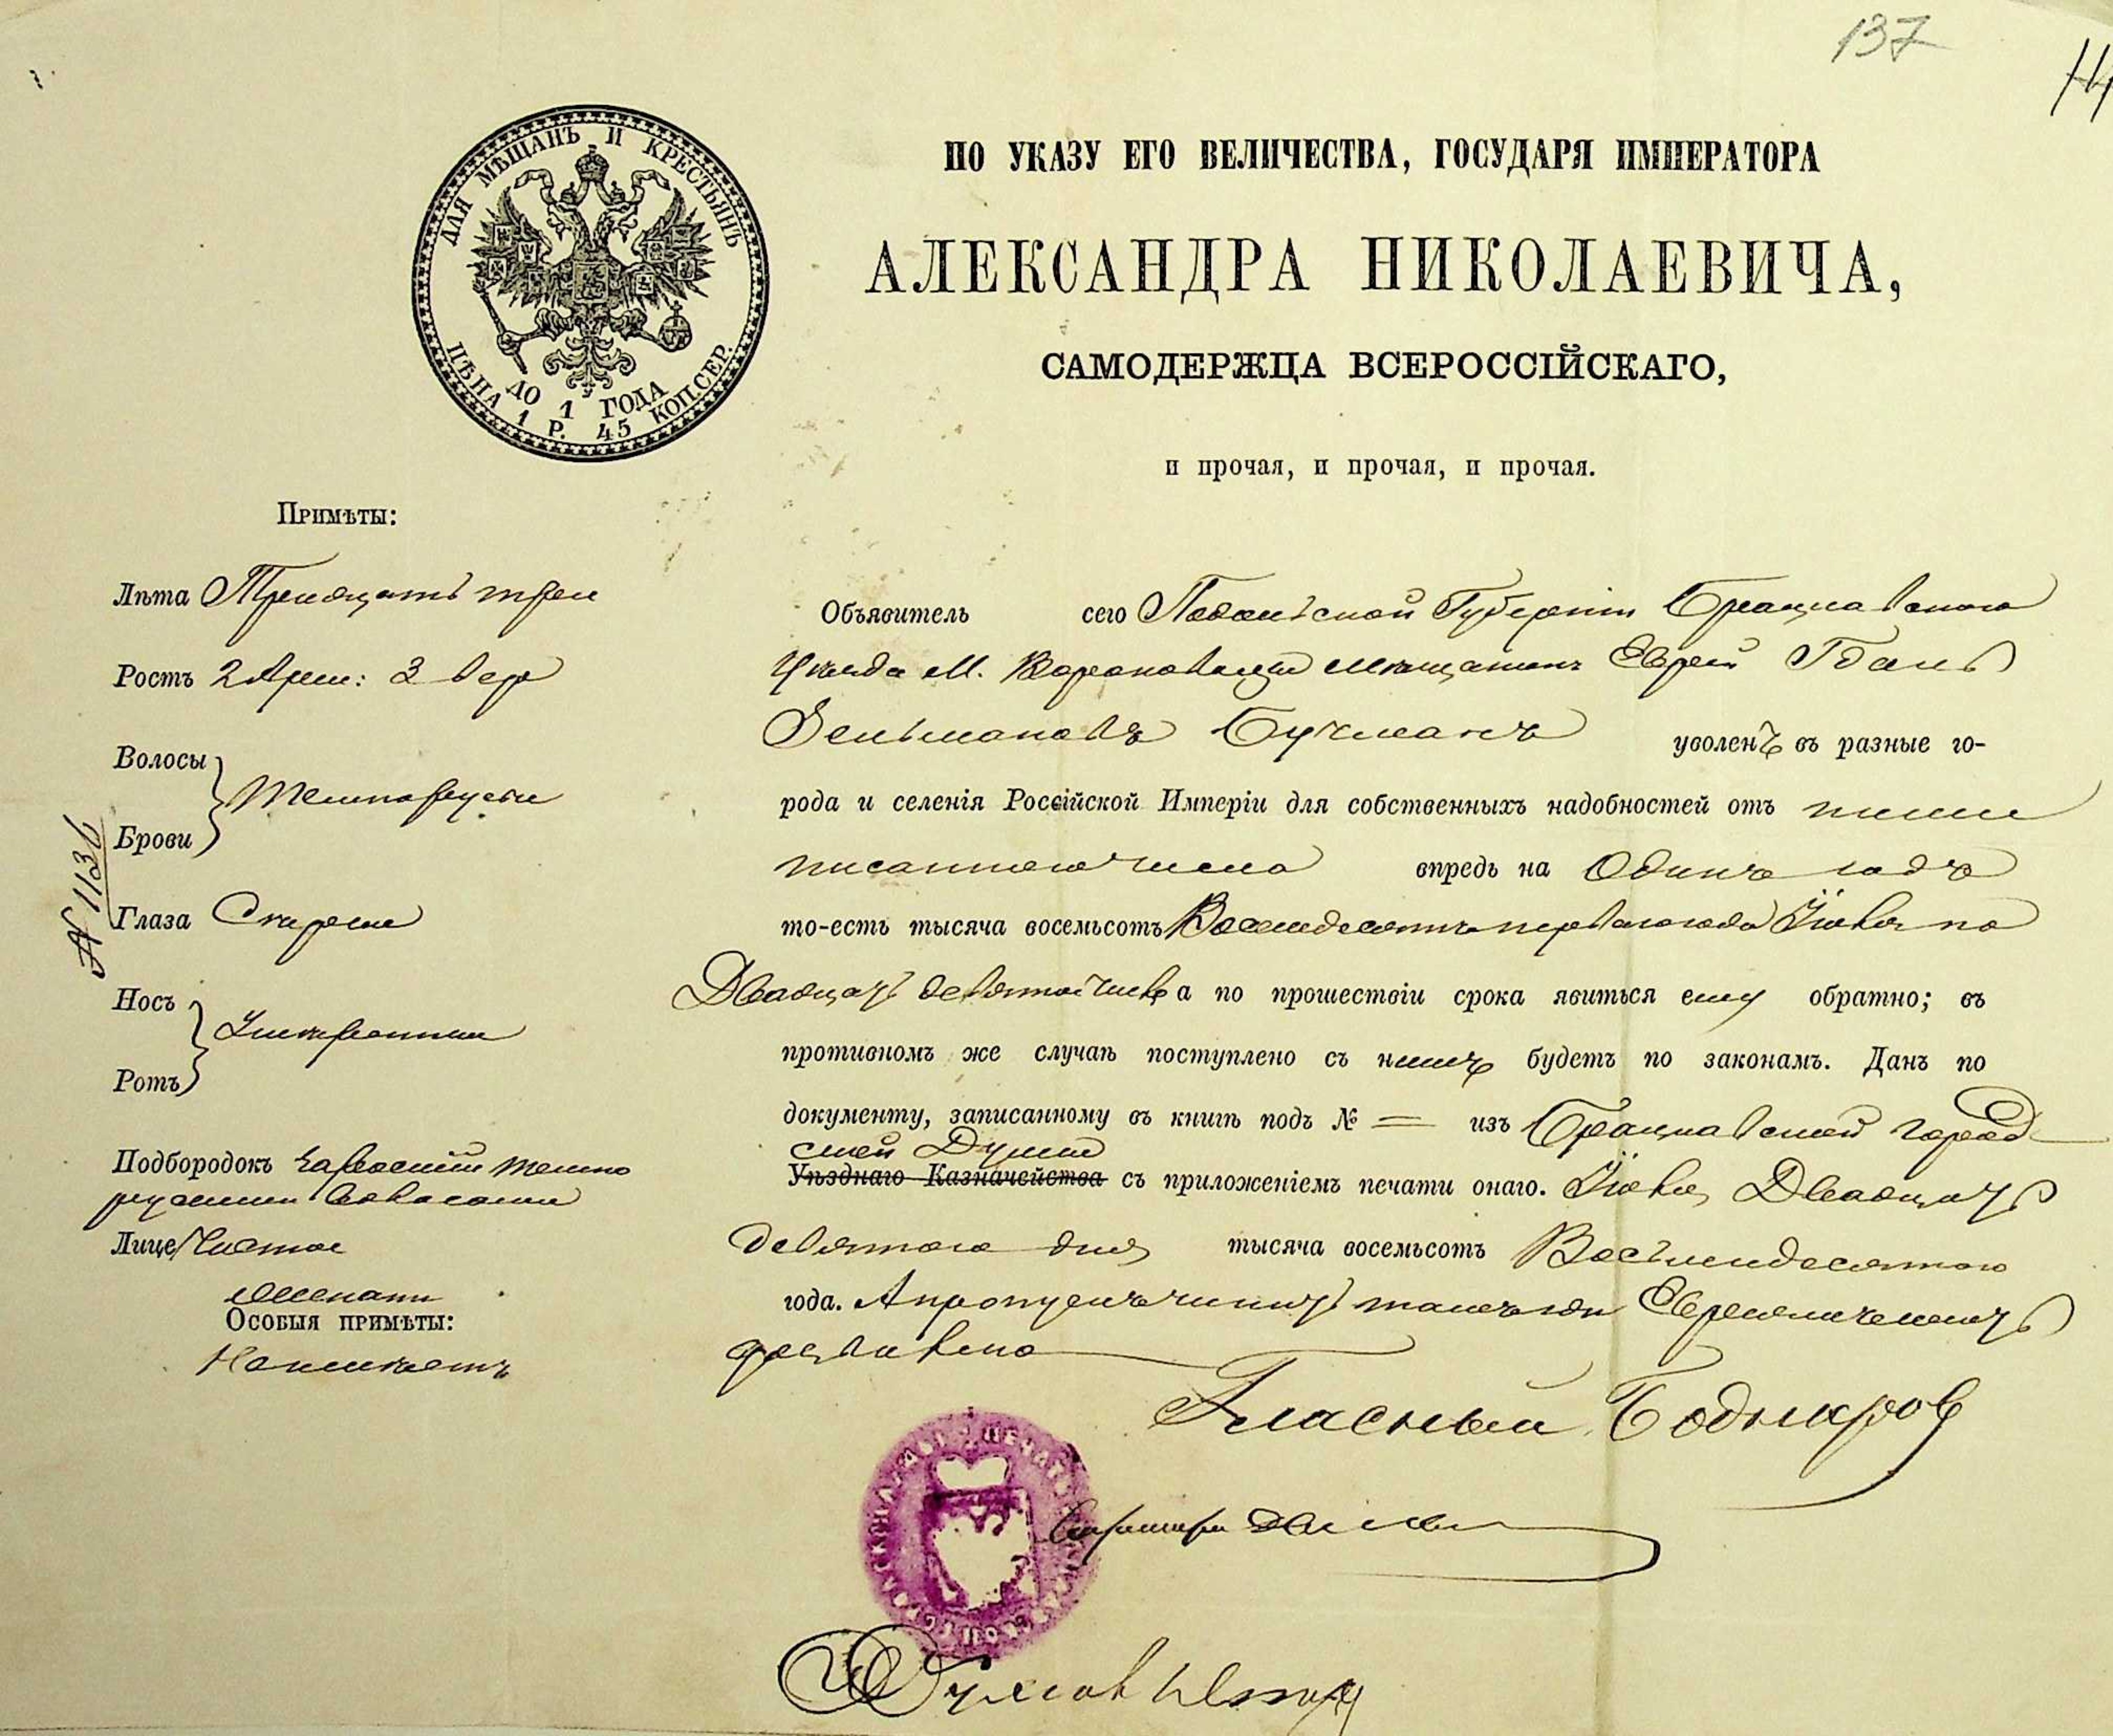 137
ДЛЯ МѢЩАНЪ И КРЕСТЬЯНЪ
ДО 1 ГОДА
ЦѢНА 1 Р. 45 КОП. СЕР.
ПО УКАЗУ ЕГО ВЕЛИЧЕСТВА, ГОСУДАРЯ ИМПЕРАТОРА
АЛЕКСАНДРА НИКОЛАЕВИЧА,
САМОДЕРЖЦА ВСЕРОССІЙСКАГО,
и прочая, и прочая, и прочая.
Примѣты:
Лѣта Тридцать три
Ростъ 2 Арш: 3 вер
Волосы
Темнорусые
Брови
№ 1136
Глаза Серые
Носъ
Умеренные
Ротъ
Подбородокъ темно
русыми волосами
Лице Чистое
Женатъ
Особыя примѣты:
Неимѣетъ
Объявитель сего Подольской Губерніи Брацлавского
Уѣзда М. Вороновицы мѣщанинъ Еврей
Зельмановъ уволенъ въ разные го-
рода и селенія Россійской Имперіи для собственныхъ надобностей отъ ниже
писанного числа впредь на Одинъ годъ
то-есть тысяча восемьсотъ Восемдесятъ первого года по
Двадцать девятое число а по прошествіи срока явиться ему обратно; въ
противномъ же случаѣ поступлено съ нимъ будетъ по законамъ. Данъ по
документу, записанному въ книгѣ подъ № = изъ Брацлавской город
ской Думы
Уѣзднаго Казначейства съ приложеніемъ печати онаго. Двадцать
девятого дня тысяча восемьсотъ Восьмидесятого
года.
Гласный Боднаров